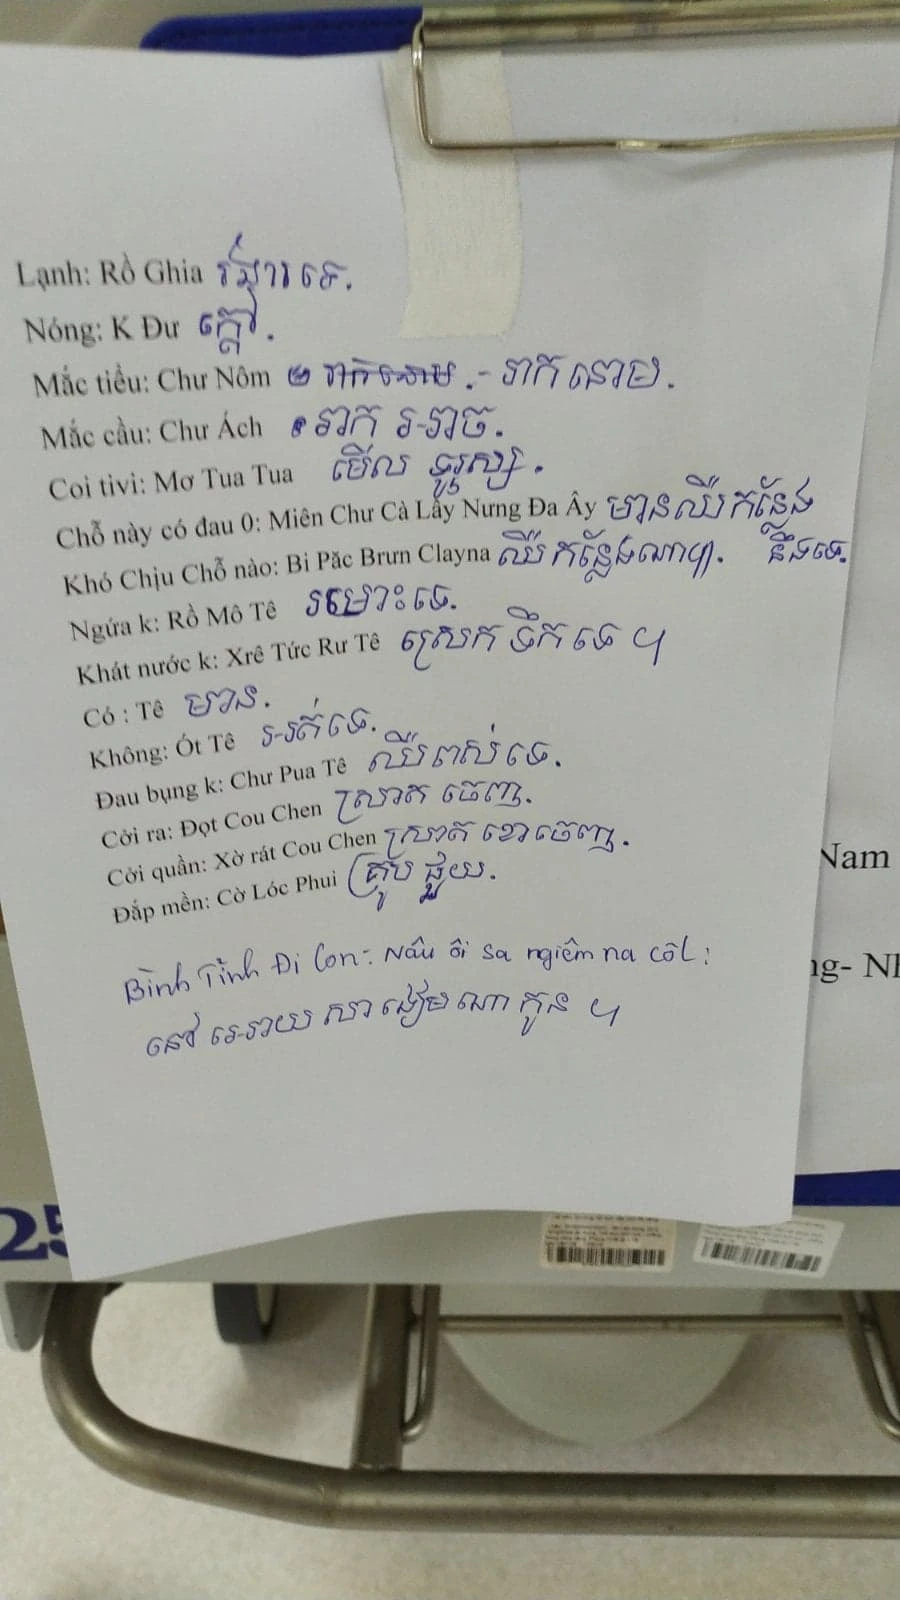 Lạnh: Rồ Ghia រងារទេ.
Nóng: K Đư ក្តៅ.
Mắc tiểu: Chư Nôm រាកនោម .- រាក នោម.
Mắc cầu: Chư Ách រាក រ-រាច.
Coi tivi: Mơ Tua Tua មើល ទូរស្ស.
Chỗ này có đau 0: Miên Chư Cà Lẩy Nưng Đa Ây មានឈឺកន្លែង
Khó Chịu Chỗ nào: Bi Păc Brưn Clayna ឈឺកន្លែងណាៗ. នឹងទេ.
Ngứa k: Rồ Mô Tê រមោះទេ.
Khát nước k: Xrê Tức Rư Tê ស្រេក ទឹក ទេ ។
Có : Tê មាន.
Không: Ót Tê រ-រត់ទេ.
Đau bụng k: Chư Pua Tê ឈឺពស់ទេ.
Cởi ra: Đọt Cou Chen ស្រាត ចេញ.
Cởi quần: Xờ rát Cou Chen ស្រាត ខោចេញ.
Đắp mền: Cờ Lóc Phui គ្រប ផួយ.
Bình Tĩnh Đi Con: Nâu ôi sa ngiêm na côl;
នៅ រេ-រាយ សា ងៀម ណា កូន ។
Nam
ng- Nh
25